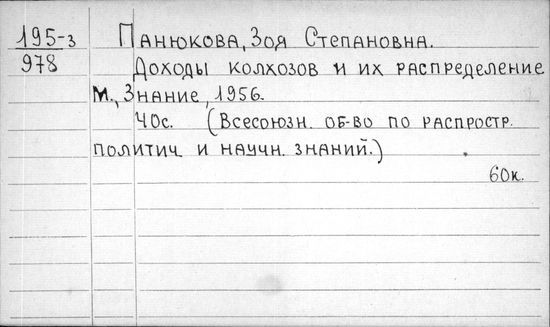 195-3
978
Панюкова, Зоя Степановна.
Доходы колхозов и их распределение
М., Знание, 1956.
40с. (Всесоюзн. об-во по распростр.
политич. и научн. знаний.)
60к.